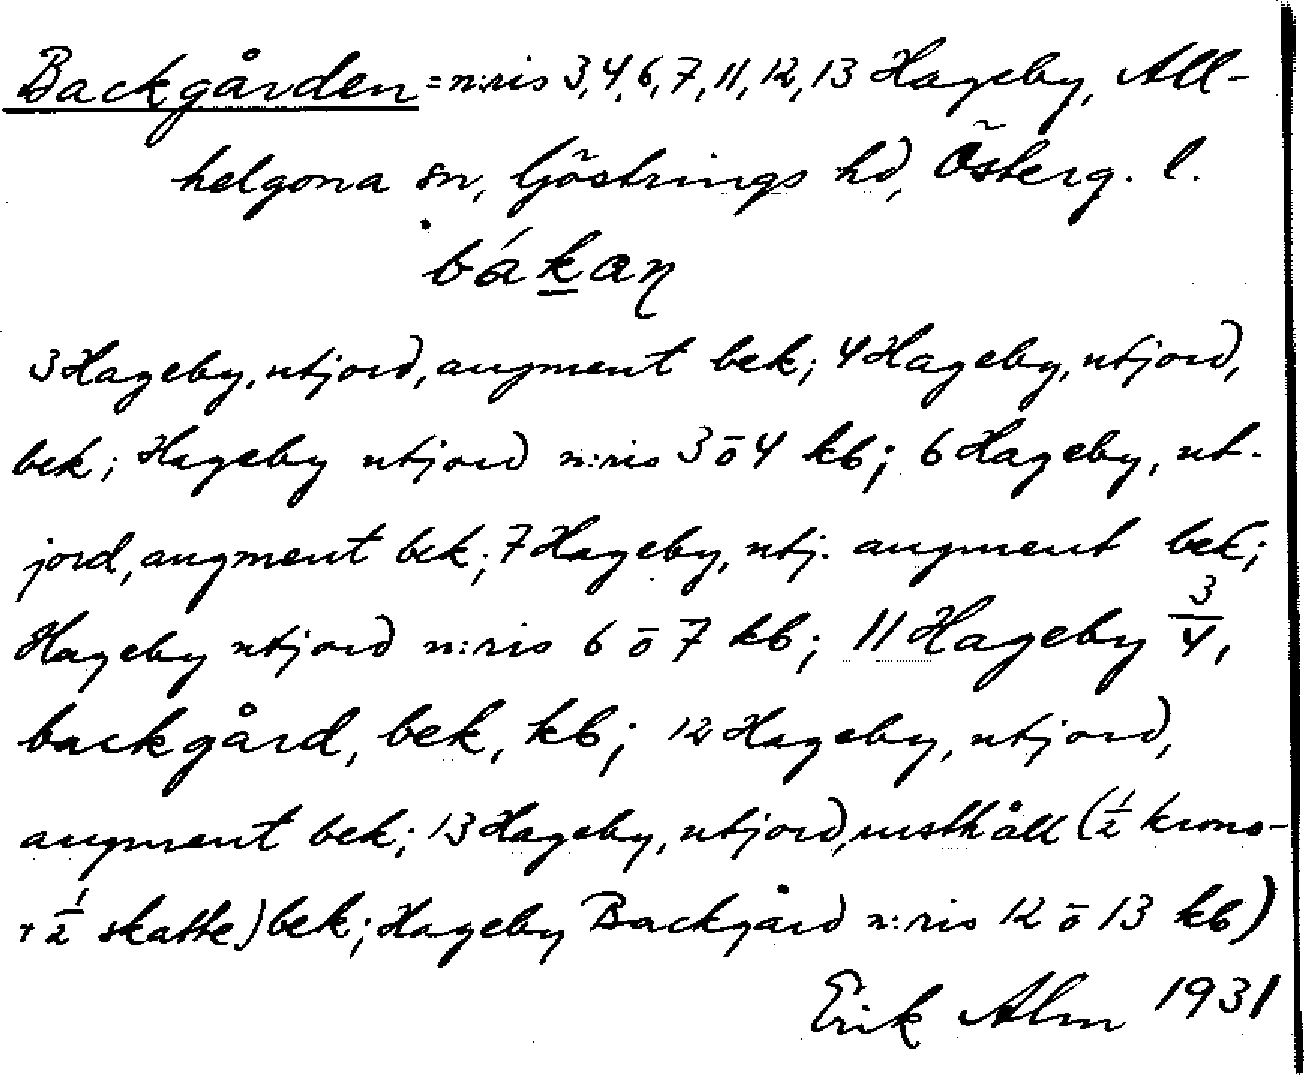 Backgården = n:ris 3, 4, 6, 7, 11, 12, 13 Hageby, All-
helgona sn, Göstrings hd, Österg. l.
bákaɳ
3 Hageby, utjord, augment bek; 4 Hageby, utjord,
bek; Hageby utjord n:ris 3 o 4 kb; 6 Hageby, ut-
jord, augment bek; 7 Hageby, utj. augment bek;
Hageby utjord n:ris 6 o 7 kb; 11 Hageby 3/4,
backgård, bek, kb; 12 Hageby, utjord,
augment bek; 13 Hageby, utjord, rusthåll (1/2 krono-
+ 1/2 skatte) bek; Hageby Backgård n:ris 12 o 13 kb)
Erik Alm 1931